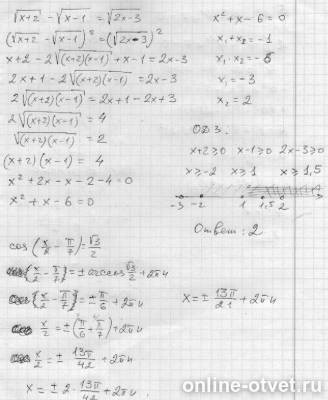 √x+2 - √x-1 = √2x-3
(√x+2 - √x-1)² = (√2x-3)²
x+2-2√(x+2)(x-1) + x-1 = 2x-3
2x+1-2√(x+2)(x-1) = 2x-3
2√(x+2)(x-1) = 2x+1-2x+3
2√(x+2)(x-1) = 4
√(x+2)(x-1) = 2
(x+2)(x-1) = 4
x²+2x-x-2-4=0
x²+x-6=0
x²+x-6=0
x₁+x₂=-1
x₁·x₂=-6
x₁=-3
x₂=2
ОДЗ.
x+2≥0 x-1≥0 2x-3≥0
x≥-2 x≥1 x≥1,5
-3 -2 1 1,5 2
Ответ: 2
cos(x/2 - π/7) = √3/2
x/2 - π/7 = ± arccos √3/2 + 2πn
x/2 - π/7 = ± π/6 + 2πn
x/2 = ±(π/6 + π/7) + 2πn
x/2 = ± 13π/42 + 2πn
x = ± 2·13π/42 + 2πn.
x = ± 13π/21 + 2πn
online-otvet.ru